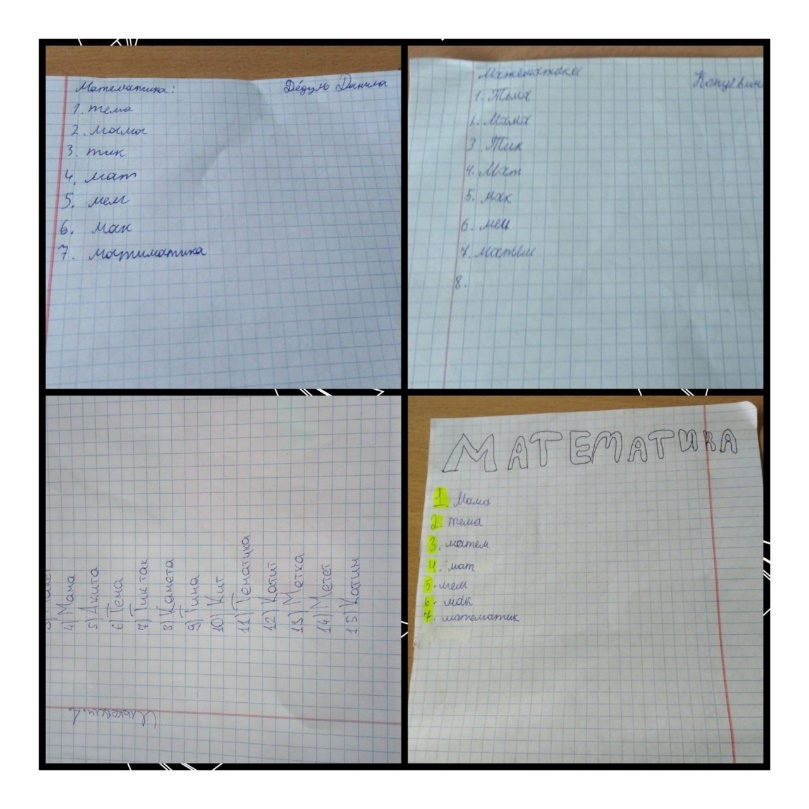 Математика: Дедуль Данила
1. тема
2. мама
3. тик
4. мат
5. мем
6. мак
7. матиматика
Математика
1. Тема
2. Мама
3 Тик
4. Мат
5. мак
6. мем
7. матем
8.
4) Мама
5) Акита
6) Тема
7) Тик так
8) Комета
9) Тина
10) Кит
11) Тематика
12) Катит
13) Метка
14) Метет
15) Катим
МАТЕМАТИКА
1. Мама
2. тема
3. матем
4. мат
5. мем
6. мак
7. математик